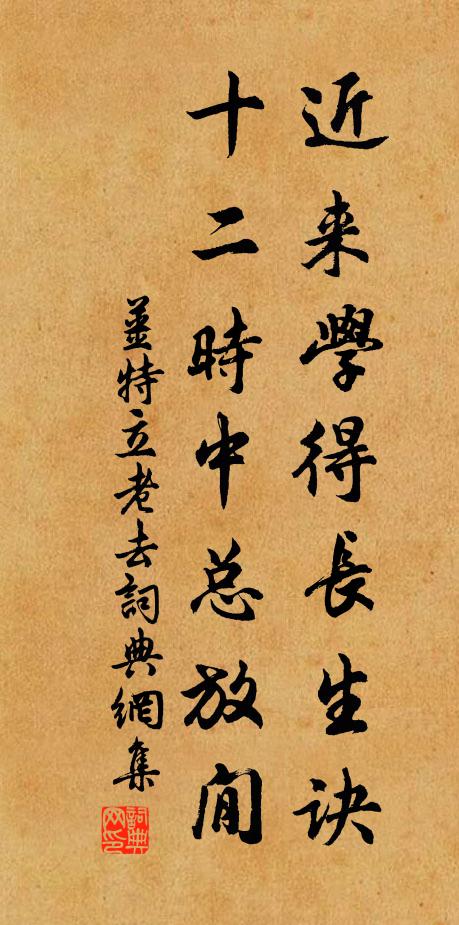 近来學得長生诀
十二時中总放閒
姜特立老去詞典網集
詞典网印